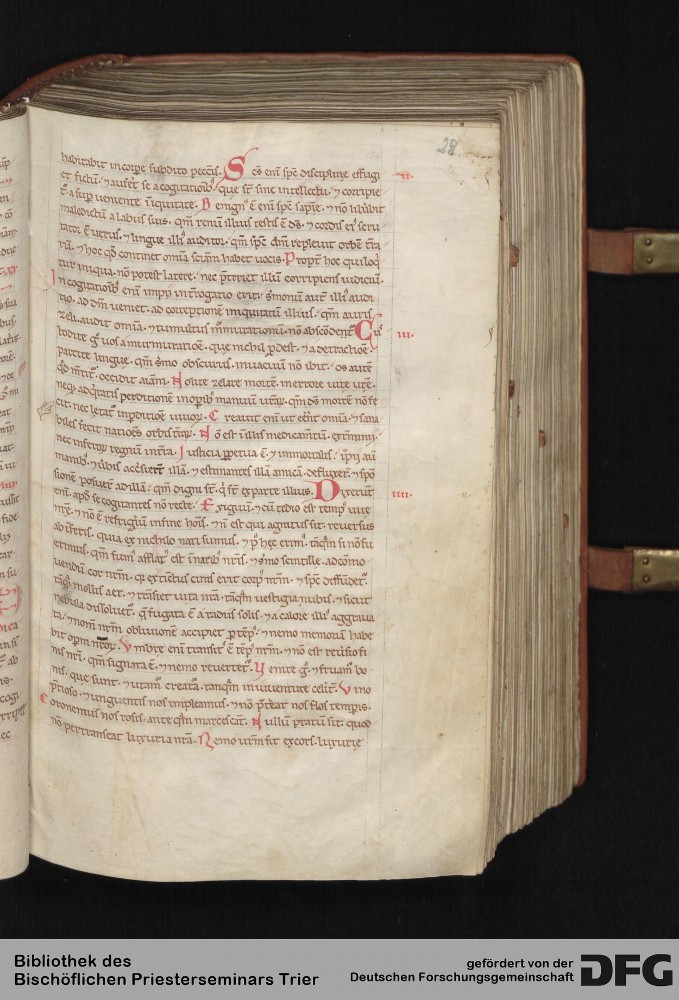 28
habitabit in corpe subdito peccis. Scs eni spc discipline effugi
et fictu. et auferet se a cogitationib; que st sine intellectu. et corripie
t' a sup ueniente iniquitate. Benign' e eni spc sapie. et no libabit
maledictu a labiis suis. qm renu illius testis e ds. et cordis ei' scru
tator e uerus. et lingue illi' auditor. qm spc dni repleuit orbe tra
ru. et hoc qd continet omia sciam habet uocis. Propt hoc qui loq
tur iniqua. no potest latere. nec pteriet illu corripiens iudiciu.
In cogitationib; eni impii introgatio erit. smonu aut illi' audi
tio. ad dm ueniet. ad correptione iniquitatu illius. qm auris
zeli. audit omia. et tumultus murmurationu. no abscondet. Cu
stodite g uos a murmuratione. que nichil pdest. et a detractione
parcite lingue. qm smo obscurus. in uacuu no ibit. os aute
qd mtit'. occidit aiam. Nolite zelare morte. in errore uite ure.
neq; adqratis perditione in opib; manuu urar. qm ds morte no fe
cit. nec letat' in pditione uiuor. Creauit eni ut eent omia. et sana
biles fecit nationes orbis trar. No est in illis medicamtu extminii
nec inferor regnu in tra. Iusticia ppetua e. et immortalis. Impii aut
manib; et uerbis accersiert illa. et estimantes illa amica. defluxert. et spo
sione posuert ad illa. qm digni st. q st ex parte illius. Dixerut
eni. apd se cogitantes no recte. Exiguu. et cu tedio est temp' uite
nre. et no e refrigeriu in fine hois. et n est qui agnitus sit reuersus
ab inferis. quia ex nichilo nati sumus. et p' hec erim'. taqm si no fu
erimus. qm fum' afflat' est in narib; nris. et smo scintille. ad como
uendu cor nrm. qr extinctus cinis erit corp' nrm. et spc diffundet'.
taqm mollis aer. et transiet uita nra. taqm uestigia nubis. et sicut
nebula dissoluet. q fugata e a radiis solis. et a calore illi' aggraua
ta. et nom nrm obliuione accipiet p temp'. et nemo memoria habe
bit opm nror. Vmbre eni transit' e temp' nrm. et no est reuersio fi
nis nri. qm signata e. et nemo reuertet'. Venite g. et fruam' bo
nis. que sunt. et utam' creata. tanqm in iuuentute celerit. Vino
ptioso. et unguentis nos impleamus. et no ptreat nos flos temporis.
Coronemus nos rosis. ante qm marcescat. Nullu pratu sit. quod
no pertranseat luxuria nra. Nemo urm sit exors. luxurie
.ii.
.iii.
.iiii.
Bibliothek des
Bischöflichen Priesterseminars Trier
gefördert von der
Deutschen Forschungsgemeinschaft
DFG